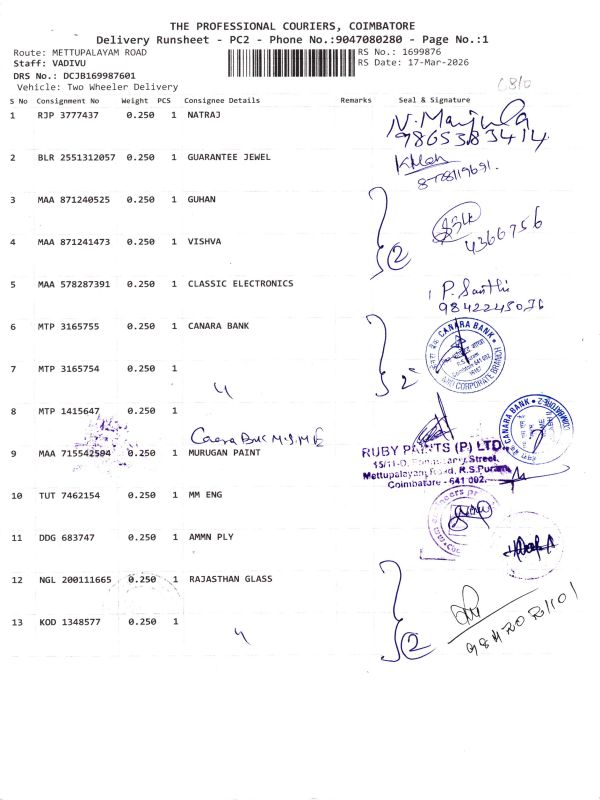 THE PROFESSIONAL COURIERS, COIMBATORE
Delivery Runsheet - PC2 - Phone No.:9047080280 - Page No.:1
Route: METTUPALAYAM ROAD
RS No.: 1699876
Staff: VADIVU
RS Date: 17-Mar-2026
DRS No.: DCJB169987601
Vehicle: Two Wheeler Delivery
S No Consignment No Weight PCS Consignee Details Remarks Seal & Signature
1 RJP 3777437 0.250 1 NATRAJ
N. Manjula
9865383414
2 BLR 2551312057 0.250 1 GUARANTEE JEWEL
3 MAA 871240525 0.250 1 GUHAN
4 MAA 871241473 0.250 1 VISHVA
2
4366756
5 MAA 578287391 0.250 1 CLASSIC ELECTRONICS
P. Santhi
6 MTP 3165755 0.250 1 CANARA BANK
CANARA BANK
7 MTP 3165754 0.250 1
2
AND CORPORATE BRANCH
8 MTP 1415647 0.250 1
CANARA BANK
COIMBATORE-2
9 MAA 715542594 0.250 1 MURUGAN PAINT
RUBY PAINTS (P) LTD.
15/11-D, Street,
Mettupalayam Road, R.S.Puram
Coimbatore - 641 002.
10 TUT 7462154 0.250 1 MM ENG
11 DDG 683747 0.250 1 AMMN PLY
12 NGL 200111665 0.250 1 RAJASTHAN GLASS
13 KOD 1348577 0.250 1
2